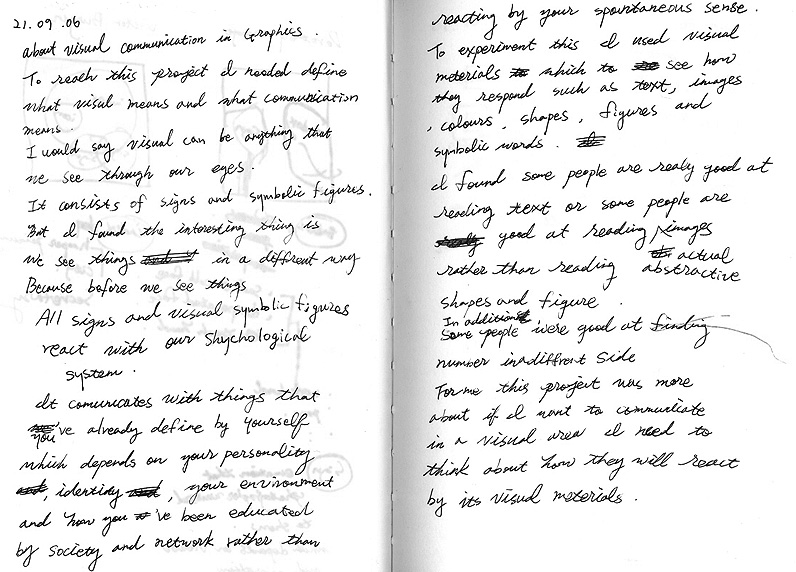 21.09.06
about visual communication in Graphics.
To reach this project I needed define
what visul means and what communication
means.
I would say visual can be anything that
we see through our eyes.
It consists of signs and symbolic figures.
But I found the interesting thing is
we see things in a different way
Because before we see things
All signs and visual symbolic figures
react with our Shychological
system.
It comunicates with things that
you've already define by yourself
which depends on your personality
, identity , your environment
and how you 've been educated
by society and network rather than
reacting by your spontaneous sense.
To experiment this I used visual
meterials which to see how
they respond such as text, images
, colours, shapes, figures and
symbolic words.
I found some people are realy good at
reading text or some people are
good at reading images
rather than reading actual
abstractive
shapes and figure.
In addition
Some people were good at finding
number in different side
For me this project was more
about if I want to communicate
in a visual area I need to
think about how they will react
by its visual meterials.